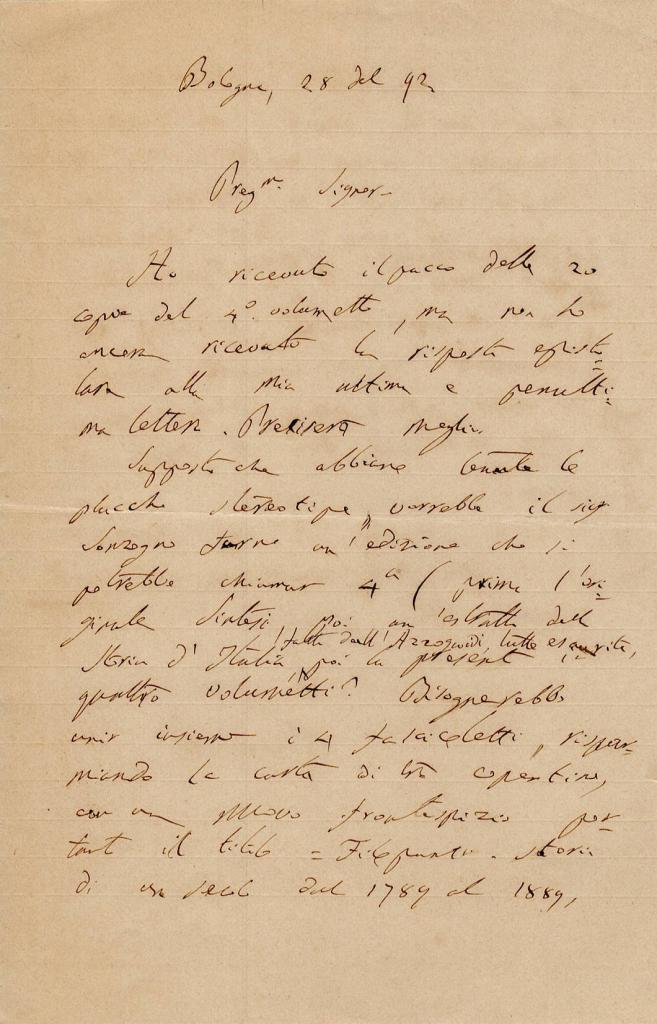 Bologna, 28 del 92
Preg.mo Signor
Ho ricevuto il pacco delle 20
copie del 4º volumetto, ma non ho
ancora ricevuto la risposta episto=
lare alla mia ultima e penulti=
ma lettera. Preciserò meglio.
Supposto che abbiano tenute le
placche stereotipe, vorrebbe il sigr
Sonzogno farne un'edizione che si
potrebbe chiamar 4a (prima l'ori=
ginale Sintesi, poi un'estratto dalla
fatta dall'Azzoguidi, tutte esaurite,
Storia d'Italia, poi la presente in
quattro volumetti? Bisognerebbe
unir insieme i 4 fascicoletti, rispar=
miando la carta di tre copertine,
con un nuovo frontespizio por=
tante il titolo = Filopanti. Storia
di un secolo dal 1789 al 1889,